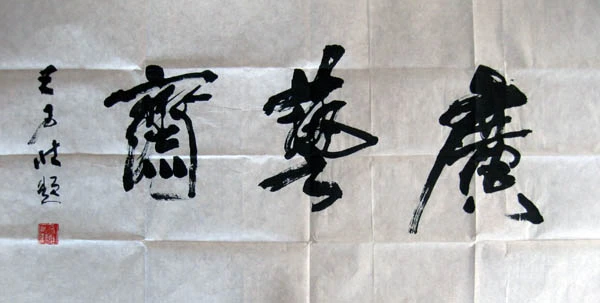 廣藝齋
王乃壯題